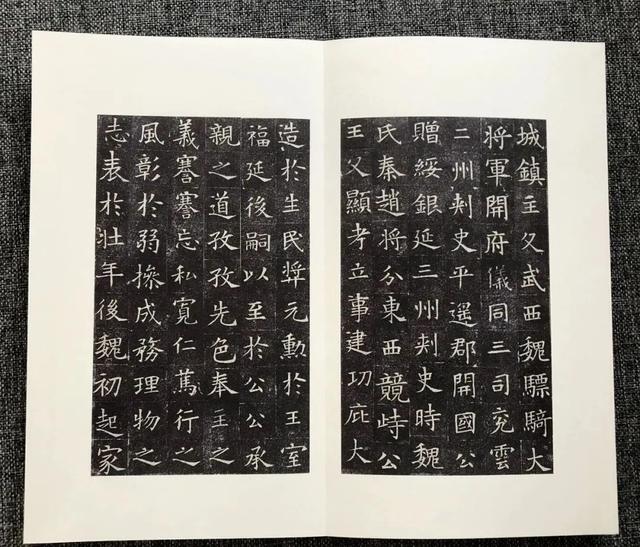 城鎮主父武西魏驃騎大
將軍開府儀同三司兗雲
二州刾史平遥郡開國公
贈綏銀延三州刾史時魏
氏秦趙將分東西競峙公
王父顯考立事建功庇大
造於生民奨元勳於王室
福延後嗣以至於公公承
親之道孜孜先色奉主之
義謇謇忘私寛仁篤行之
風彰於弱操成務理物之
志表於壮年後魏初起家